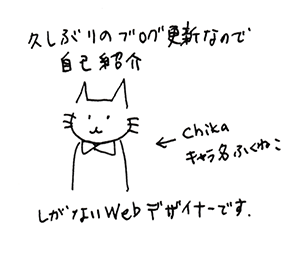 久しぶりのブログ更新なので
自己紹介
← chika
キャラ名ふくねこ
しがないWebデザイナーです.